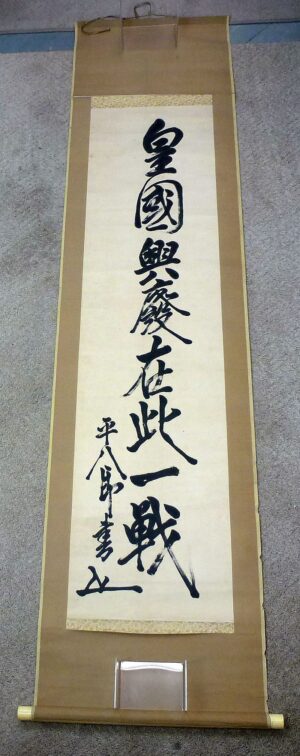 皇國興廢在此一戦
平八郎書